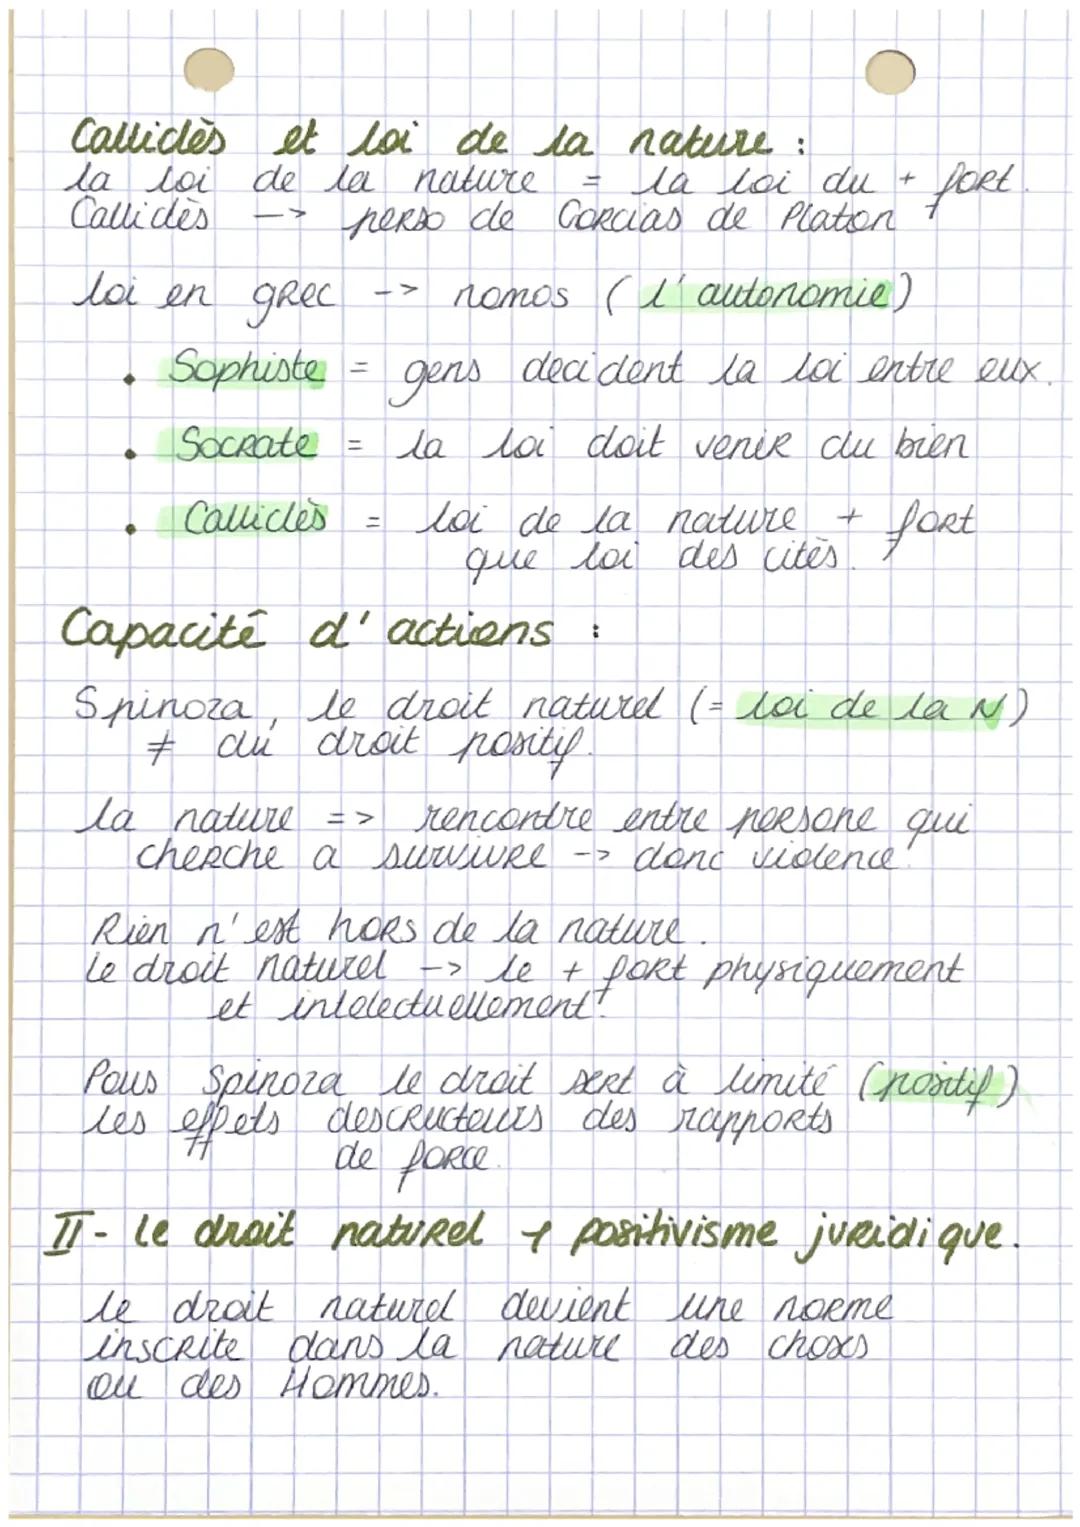 Calliclès et loi de la nature :
la loi de la nature = la loi du + fort.
Calliclès --> perso de Gorgias de Platon
loi en grec --> nomos (l'autonomie)
• Sophiste = gens decident la loi entre eux.
• Socrate = la loi doit venir du bien
• Calliclès = loi de la nature + fort
que loi des cités.
Capacité d'actions :
Spinoza, le droit naturel (= loi de la N)
≠ du droit positif.
la nature => rencontre entre persone qui
cherche a survivre --> donc violence.
Rien n'est hors de la nature.
Le droit naturel --> le + fort physiquement
et intelectuellement.
Pous Spinoza le droit sert à limité (positif)
les effets descructeurs des rapports
de force.
II- Le droit naturel + positivisme juridique.
le droit naturel devient une norme
inscrite dans la nature des choses
ou des Hommes.